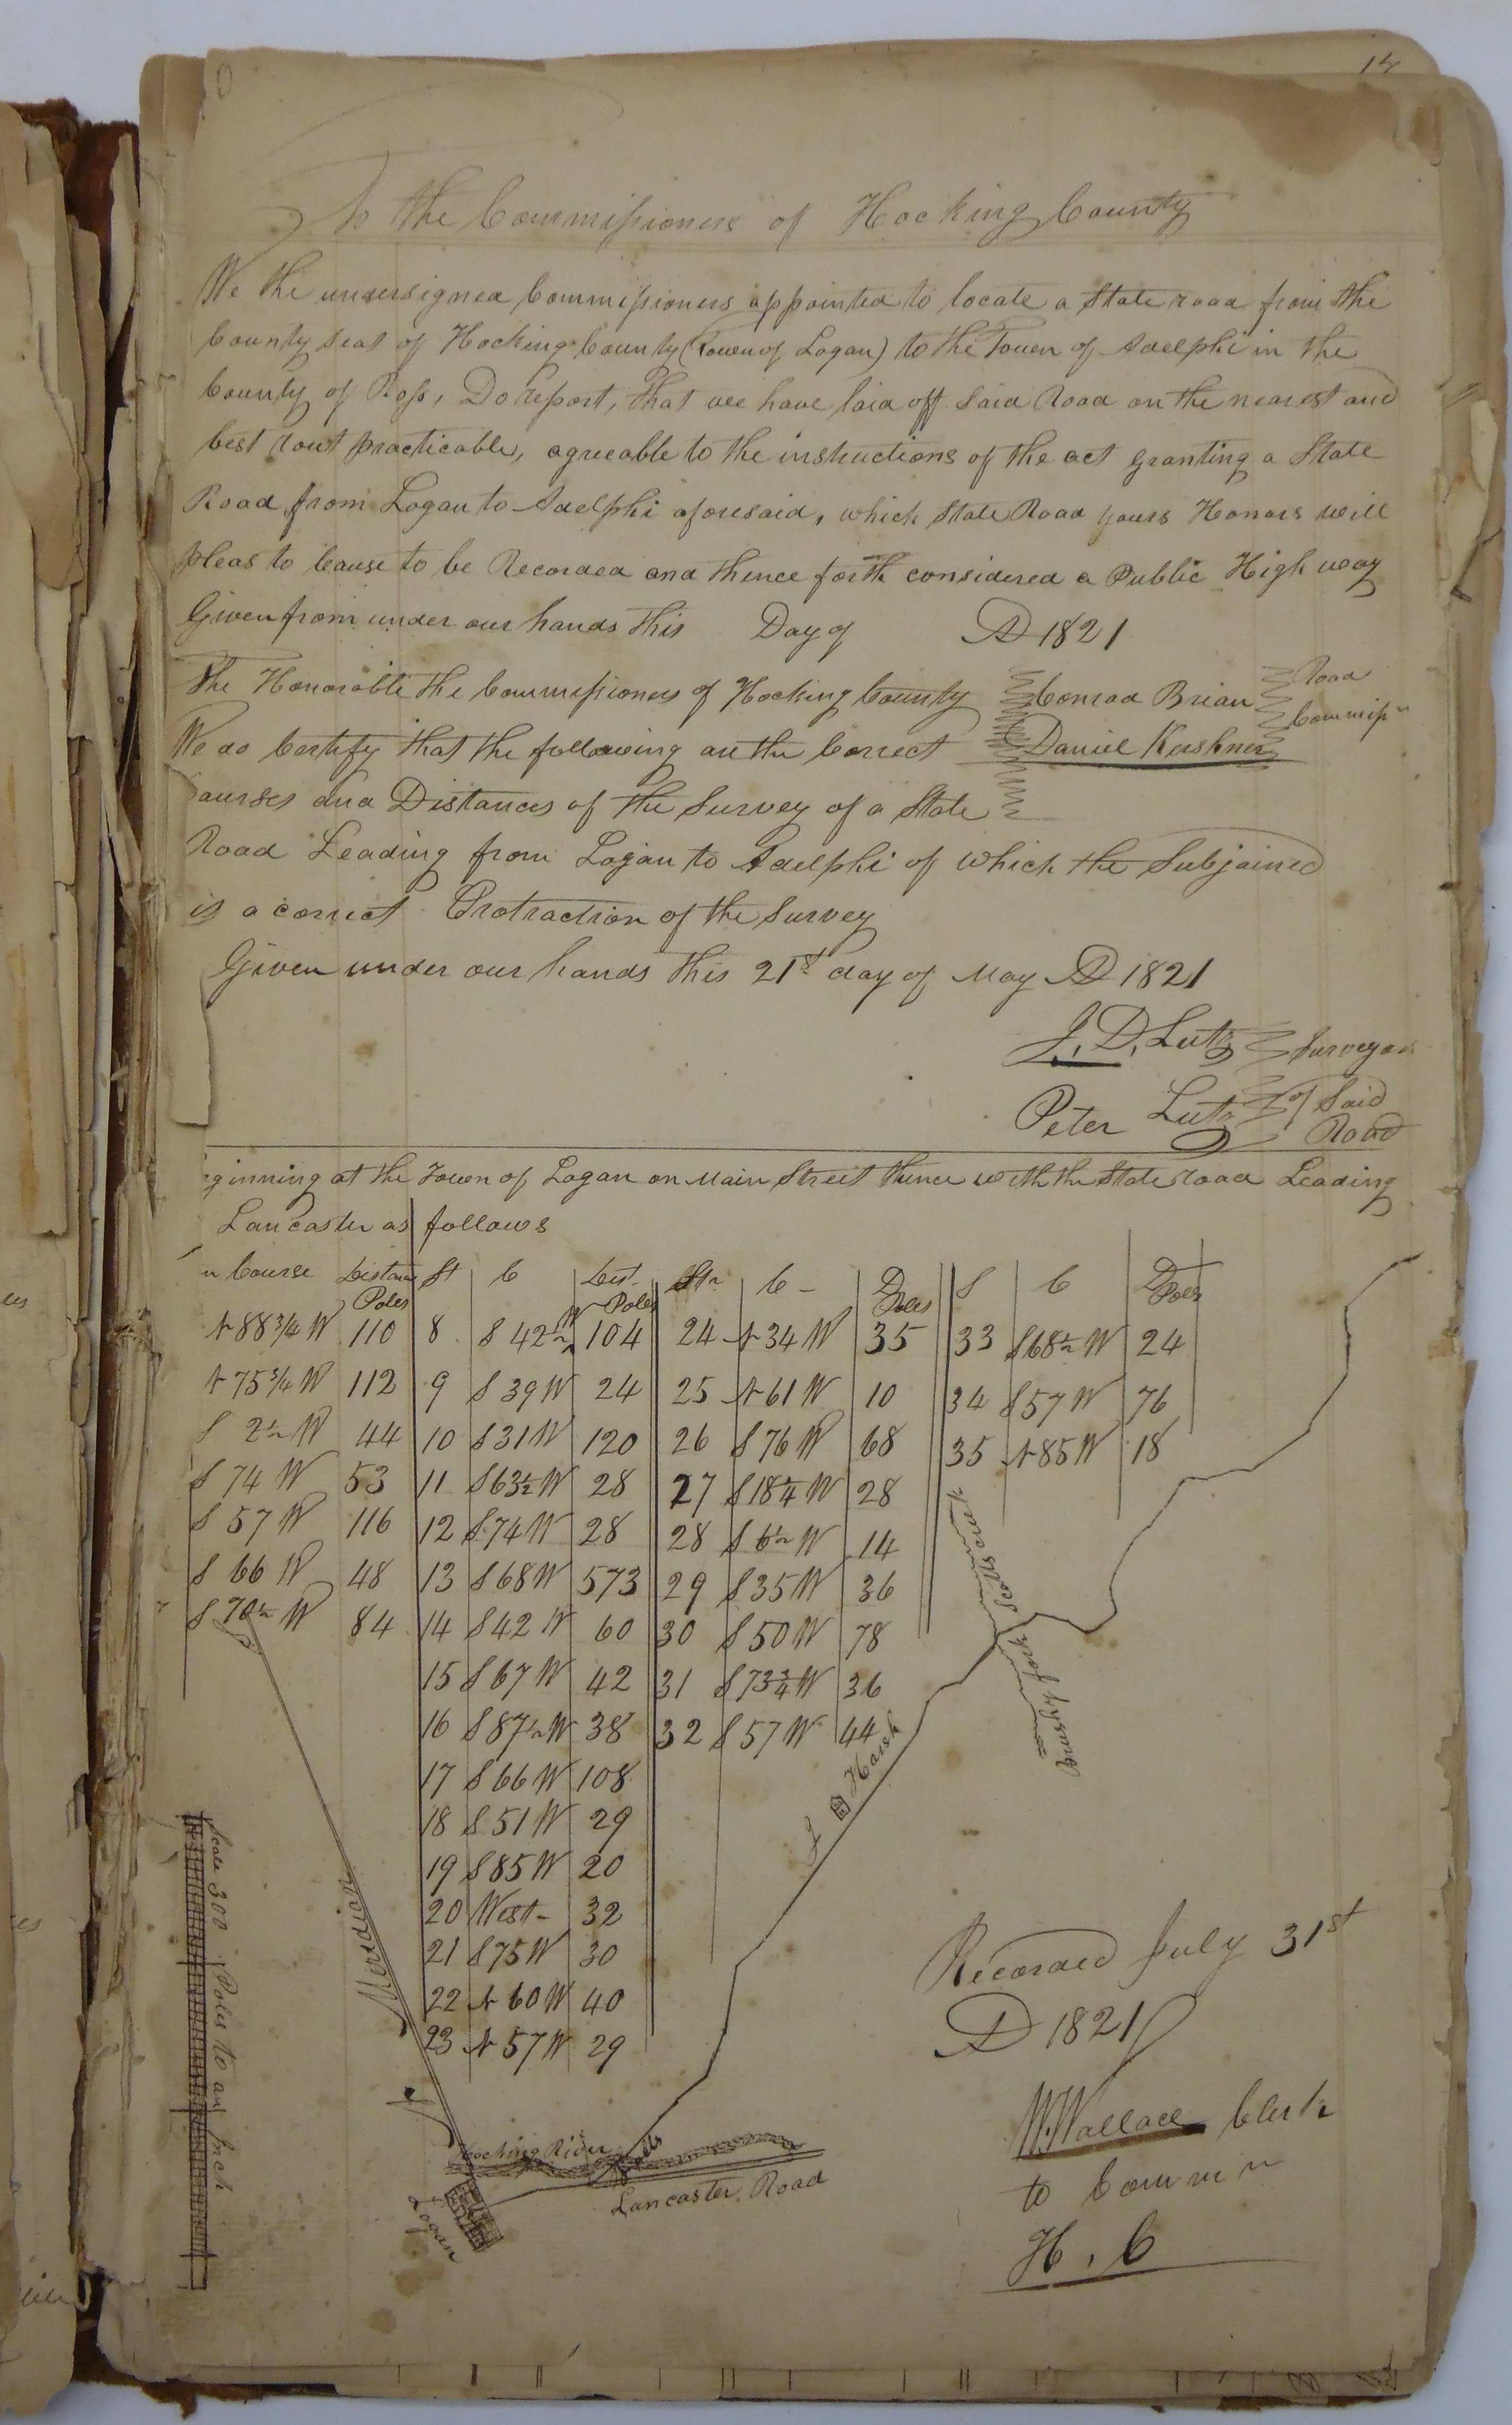 14
To the Commissioners of Hocking County
We the undersigned Commissioners appointed to locate a State road from the
County Seat of Hocking County (Town of Logan) to the Town of Adelphi in the
County of Ross, Do report, that wee have laid off Said Road on the nearest and
best rout practicable, agreeable to the instructions of the act granting a State
Road from Logan to Adelphi aforesaid, which State Road yours Honors will
pleas to Cause to be Recorded and thence forth considered a Public High way
Given from under our hands this Day of AD 1821
The Honorable the Commissioners of Hocking County
Conrad Brian
Daniel Kershner
Road
Commissn
We do Certify that the following are the Correct
ourses and Distances of the Survey of a State
Road Leading from Logan to Adelphi of which the Subjained
is a correct Protraction of the Survey
Given under our hands this 21st day of May AD 1821
J. D. Lutz Surveyors
Peter Lutz of Said
Road
ginning at the Town of Logan on Main Street thence with the State road Leading
Lancaster as follows
n Course Distance Poles St C Dist. Poles Stn C D Poles S C D Poles
N 88 3/4 W 110 8 S 42 1/2 W 104 24 N 34 W 35 33 S 68 1/2 W 24
N 75 3/4 W 112 9 S 39 W 24 25 N 61 W 10 34 S 57 W 76
S 2 1/2 W 44 10 S 31 W 120 26 S 76 W 68 35 N 85 W 18
S 74 W 53 11 S 63 1/2 W 28 27 S 18 1/4 W 28
S 57 W 116 12 S 74 W 28 28 S 6 1/2 W 14
S 66 W 48 13 S 68 W 573 29 S 35 W 36
S 70 1/2 W 84 14 S 42 W 60 30 S 50 W 78
15 S 67 W 42 31 S 73 3/4 W 36
16 S 87 1/2 W 38 32 S 57 W 44
17 S 66 W 108
18 S 51 W 29
19 S 85 W 20
20 West 32
21 S 75 W 30
22 N 60 W 40
23 N 57 W 29
Scotts cr
Brushy fork
J Harsh
Meridian
Scale 300 Poles to an Inch
Hocking River
Lancaster Road
Logan
Recorded July 31st
AD 1821
W. Wallace Clerk
to Commn
H. C